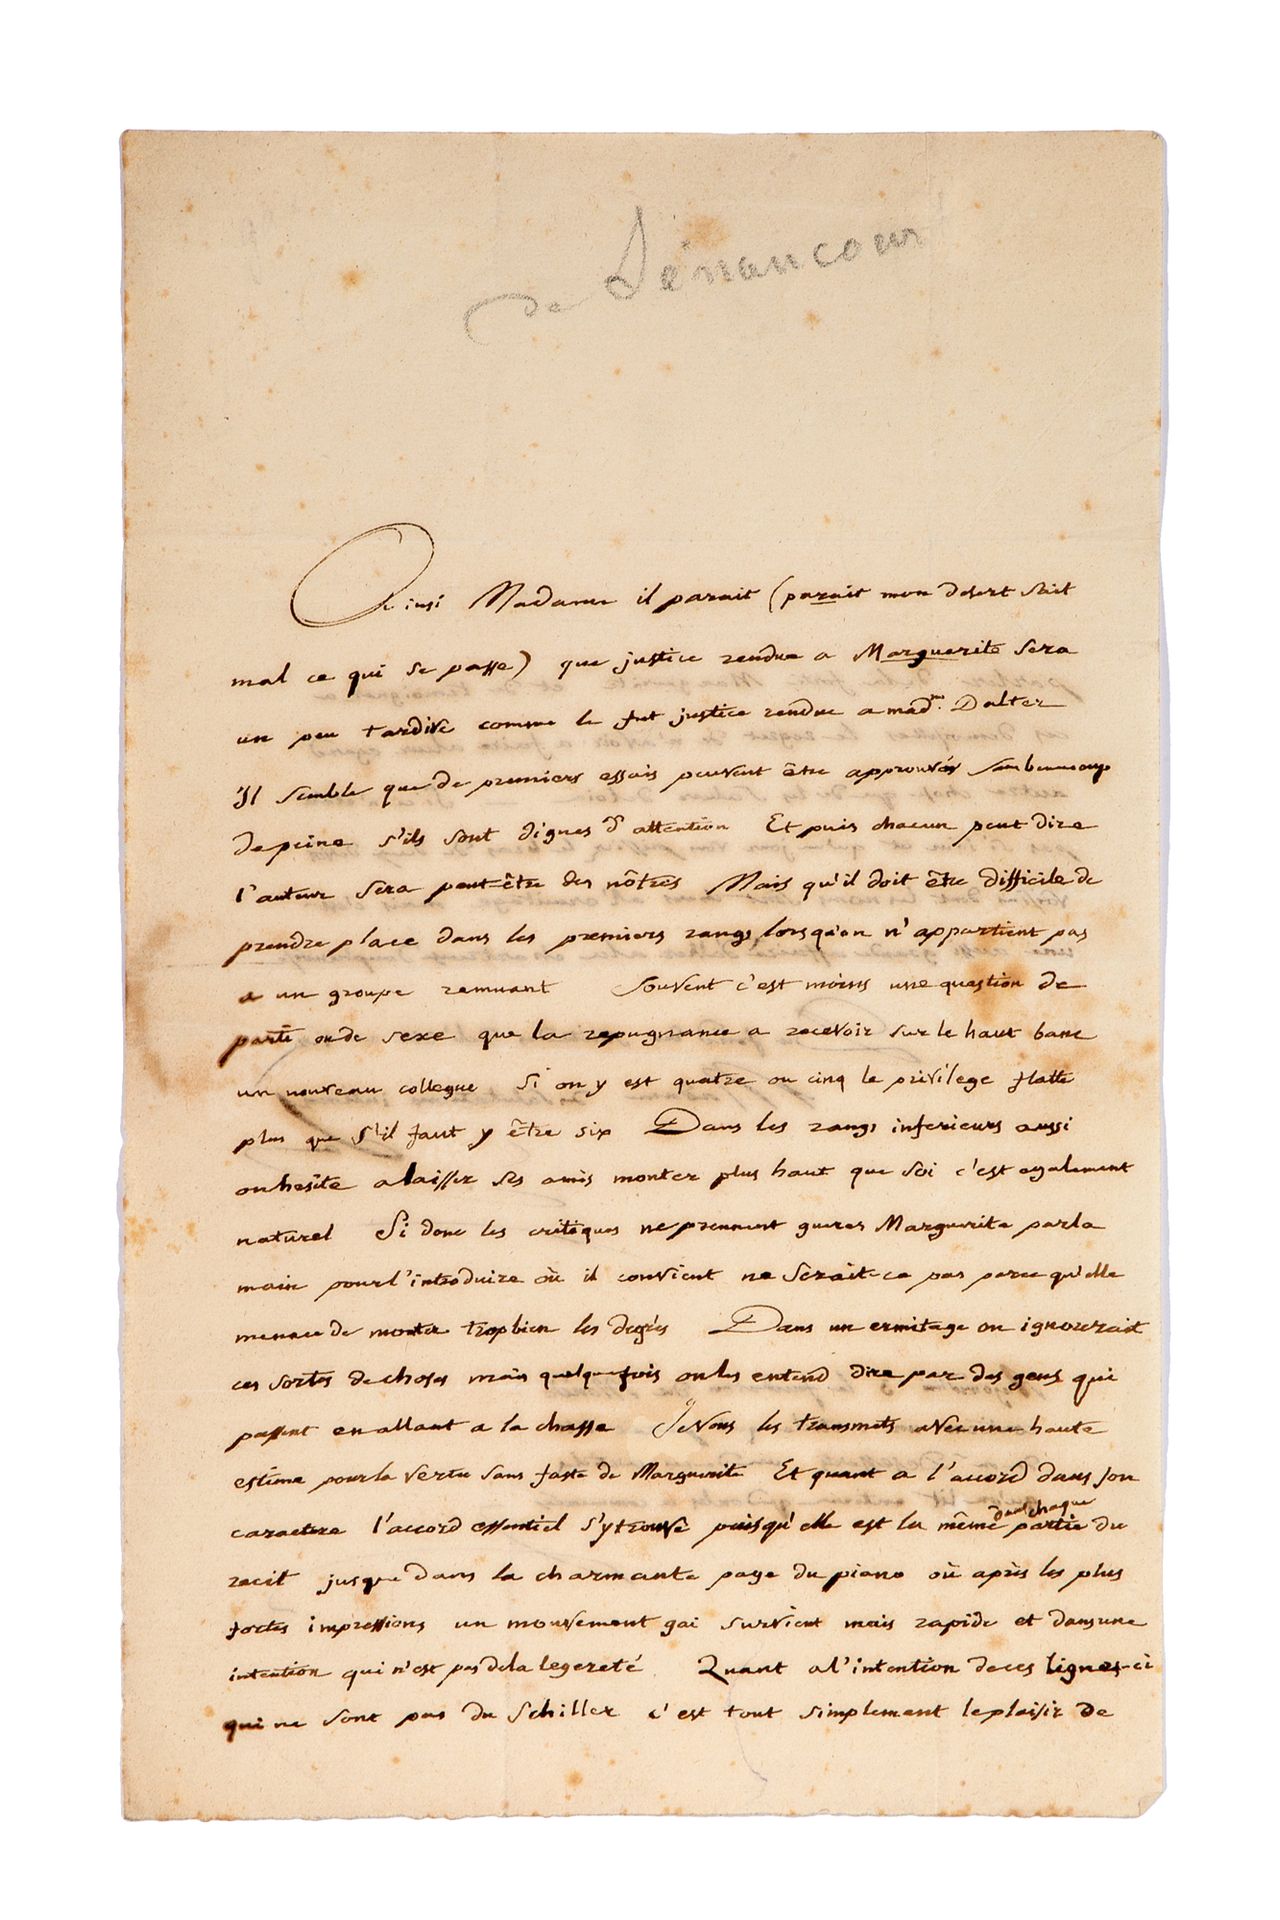 de Sénancour
Ainsi Madame il parait (parait mon desert sait
mal ce qui se passe) que justice rendue a Marguerite sera
un peu tardive comme le fut justice rendue a mad.me Dalter
Il semble que de premiers essais peuvent être approuvés sans beaucoup
de peine s'ils sont dignes d'attention Et puis chacun peut dire
l'auteur sera peut-être des nôtres Mais qu'il doit être difficile de
prendre place dans les premiers rangs lorsqu'on n'appartient pas
a un groupe remuant Souvent c'est moins une question de
parti ou de sexe que la repugnance a recevoir sur le haut banc
un nouveau collegue Si on y est quatre ou cinq le privilege flatte
plus que s'il faut y être six Dans les rangs inferieurs aussi
on hesite a laisser ses amis monter plus haut que soi c'est egalement
naturel Si donc les critiques ne prennent gueres Marguerite par la
main pour l'introduire où il convient ne serait-ce pas parce qu'elle
menace de monter trop bien les degrés Dans un ermitage on ignorerait
ces sortes de choses mais quelquefois on les entend dire par des gens qui
passent en allant a la chasse Je vous les transmets avec une haute
estime pour la vertu sans faste de Marguerite Et quant a l'accord dans son
caractere l'accord essentiel s'y trouve puisqu'elle est la même dans chaque partie du
recit jusque dans la charmante page du piano où après les plus
fortes impressions un mouvement gai survient mais rapide et dans une
intention qui n'est pas de la legereté Quant a l'intention de ces lignes-ci
qui ne sont pas du Schiller c'est tout simplement le plaisir de